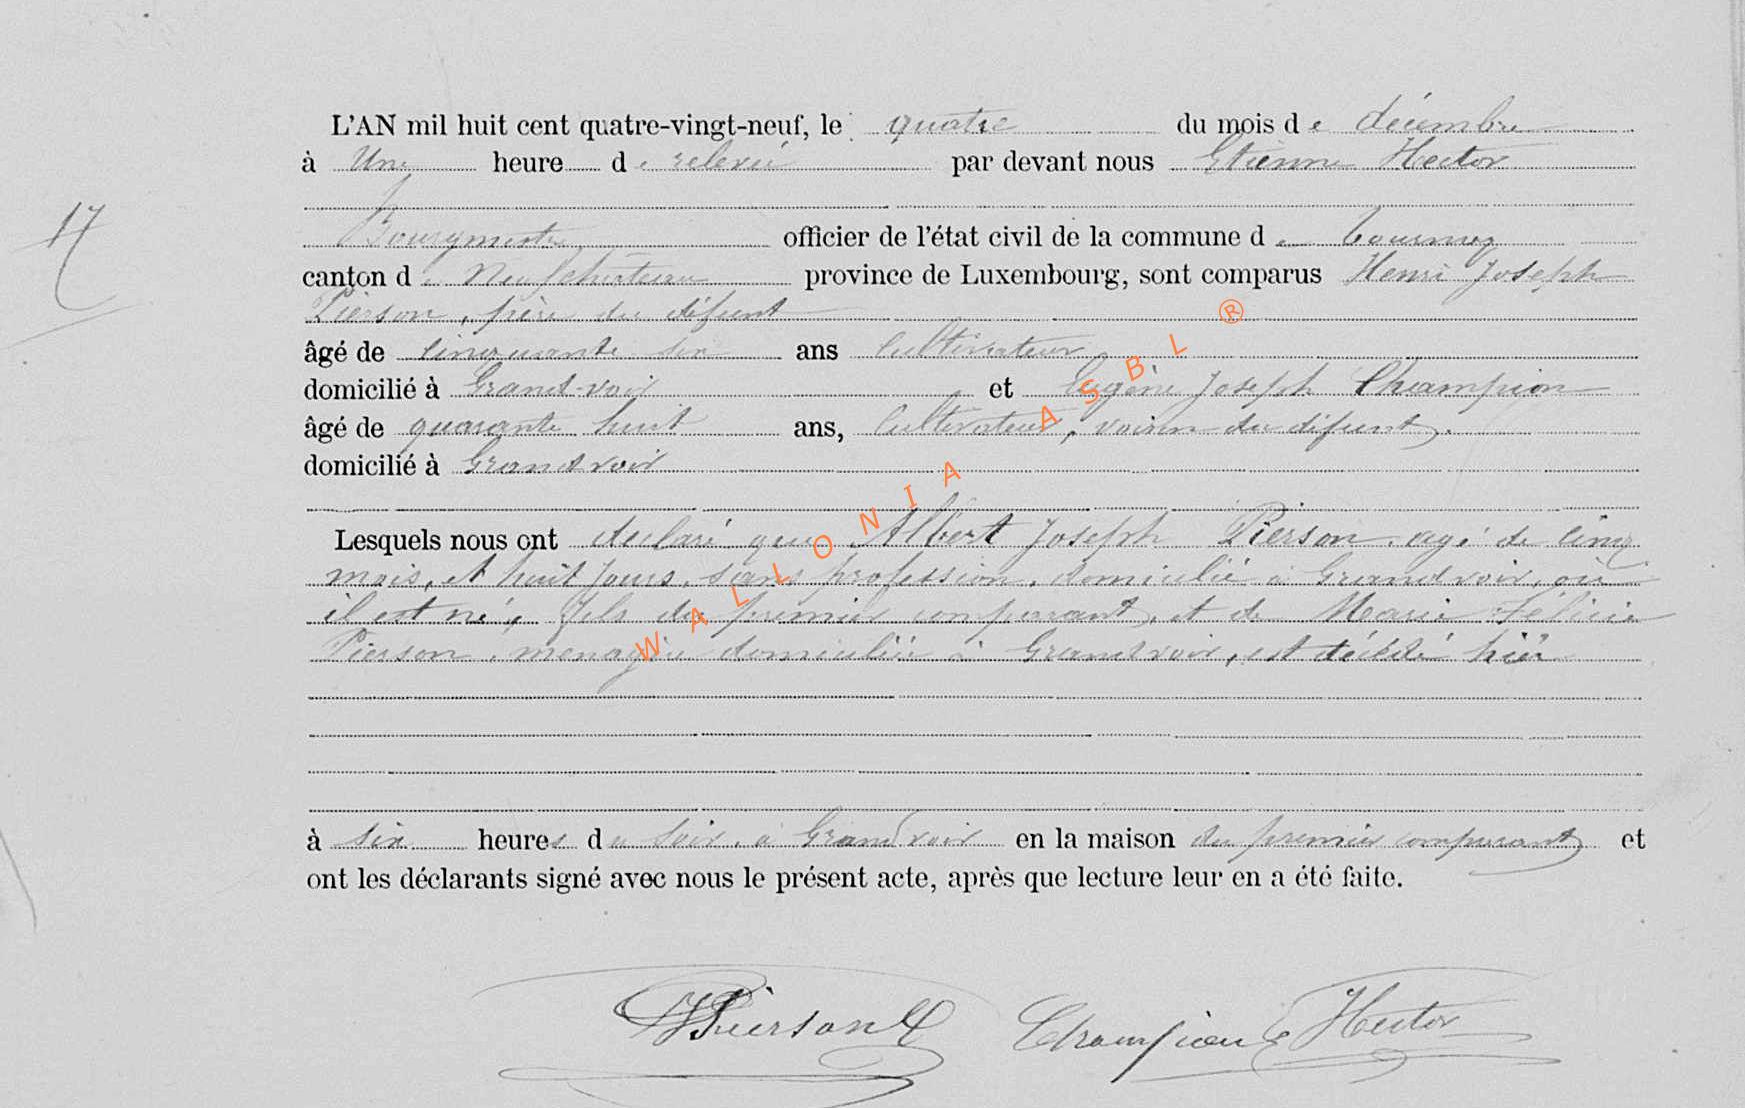 L'AN mil huit cent quatre-vingt-neuf, le quatre du mois de décembre
à Une heure de relevée par devant nous Etienne Hector
17
Bourgmestre, officier de l'état civil de la commune de Tournay
canton de Neufchâteau province de Luxembourg, sont comparus Henri Joseph
Pierson, père du défunt
âgé de cinquante six ans cultivateur
domicilié à Grand-voir et Eugène Joseph Champion
âgé de quarante huit ans, cultivateur, voisin du défunt.
domicilié à Grandvoir
Lesquels nous ont déclaré que Albert Joseph Pierson, agé de cinq
mois, et huit jours, sans profession, domicilié à Grandvoir, où
il est né, fils du premier comparant, et de Marie Félicie
Pierson, ménagère domiciliée à Grandvoir, est décédé hier
à six heures du soir, à Grandvoir en la maison du premier comparant et
ont les déclarants signé avec nous le présent acte, après que lecture leur en a été faite.
HPierson Champion E Hector
WALLONIA ASBL ®